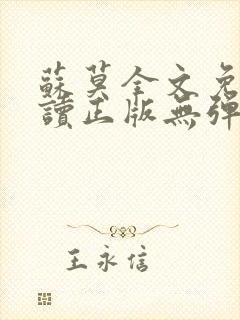 蘇莫全文免
讀正版無彈
王永信